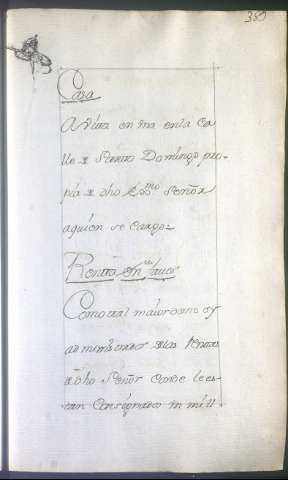 385
Casa
Avita en una en la Ca
lle de Santo Domingo pro-
pia de dho Exmo Señor
aquien se cargo-
Renta en su favor
Como tal maiordomo y
administrador de las rentas
a dho Señor Conde le es-
tan Consignados un mill